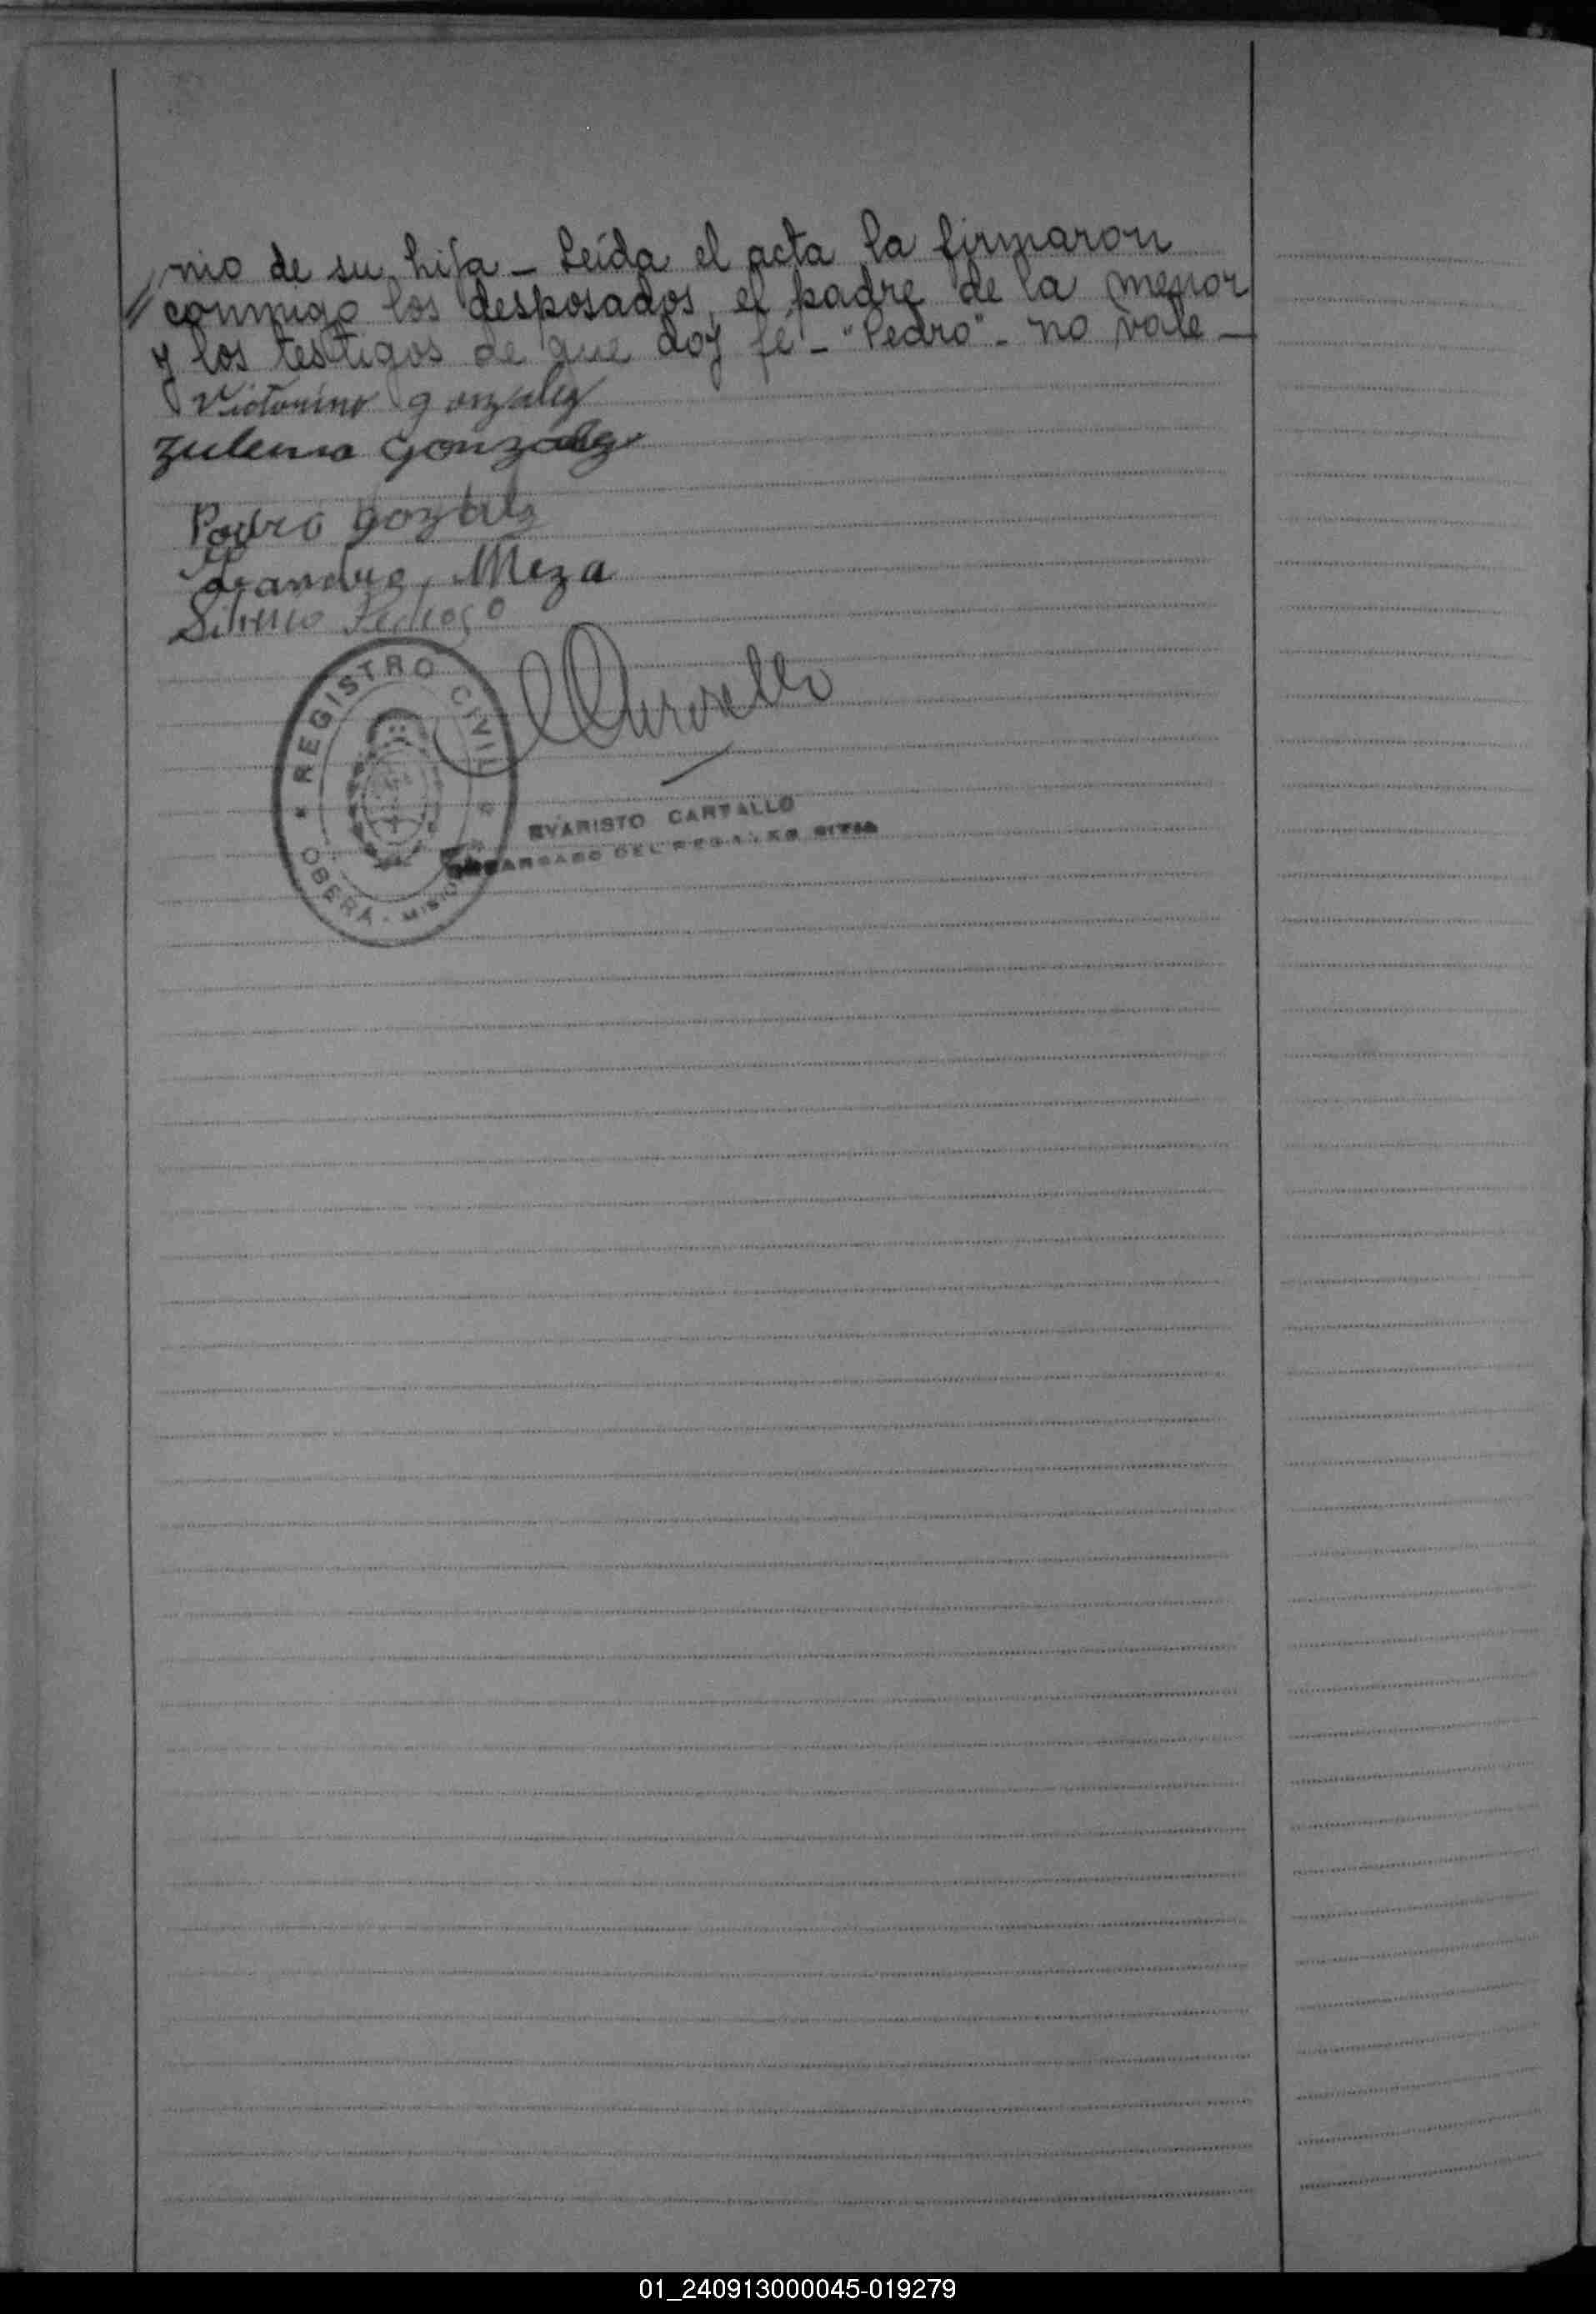 nio de su hija - Leída el acta la firmaron
conmigo los desposados, el padre de la menor
y los testigos de que doy fé - "Pedro" - no vale -
Victorino gonzalez
Zulema Gonzalez
Pedro
Meza
REGISTRO CIVIL
OBERÁ - MISIONES
EVARISTO CARVALLO
ENCARGADO DEL REGISTRO CIVIL
01_240913000045-019279